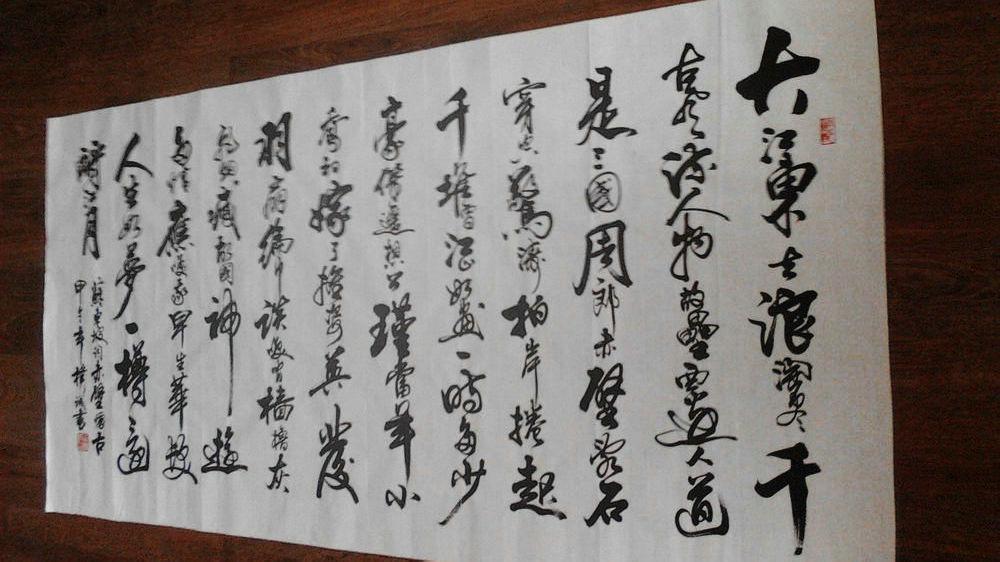 大江東去浪淘尽千
古風流人物故壘西邊人道
是三國周郎赤壁乱石
穿空驚濤拍岸捲起
千堆雪江山如畫一時多少
豪傑遥想公瑾當年小
喬初嫁了雄姿英發
羽扇綸巾談笑間檣櫓灰
飛煙滅故國神遊
多情應笑我早生華髮
人生如夢一樽還
酹江月
蘇東坡詞赤壁懷古
甲午年書